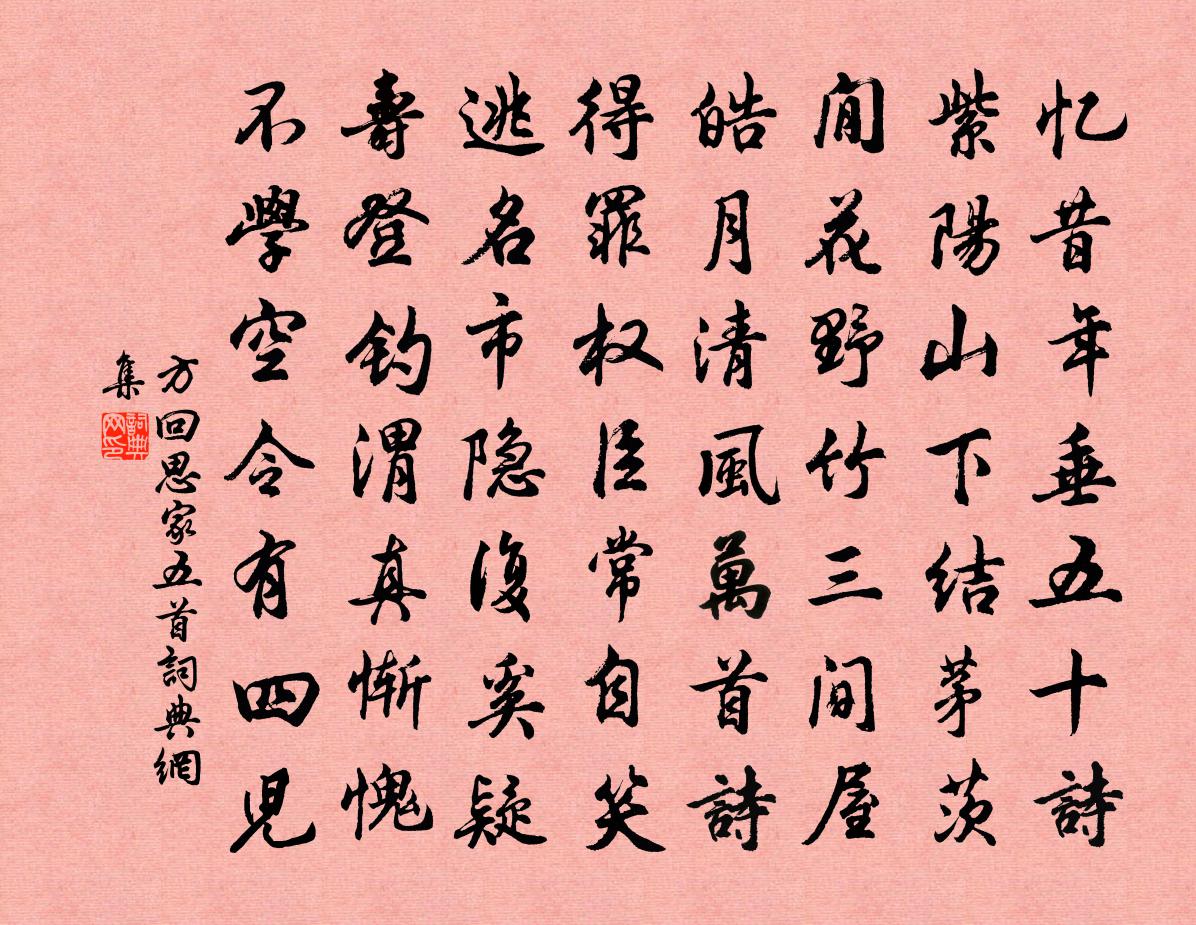 忆昔年垂五十詩
紫陽山下结茅茨
閒花野竹三间屋
皓月清風萬首詩
得罪权臣常自笑
逃名市隐復奚疑
壽登釣渭真慚愧
不學空令有四兒
方回思家五首詞典網
集
詞典网印